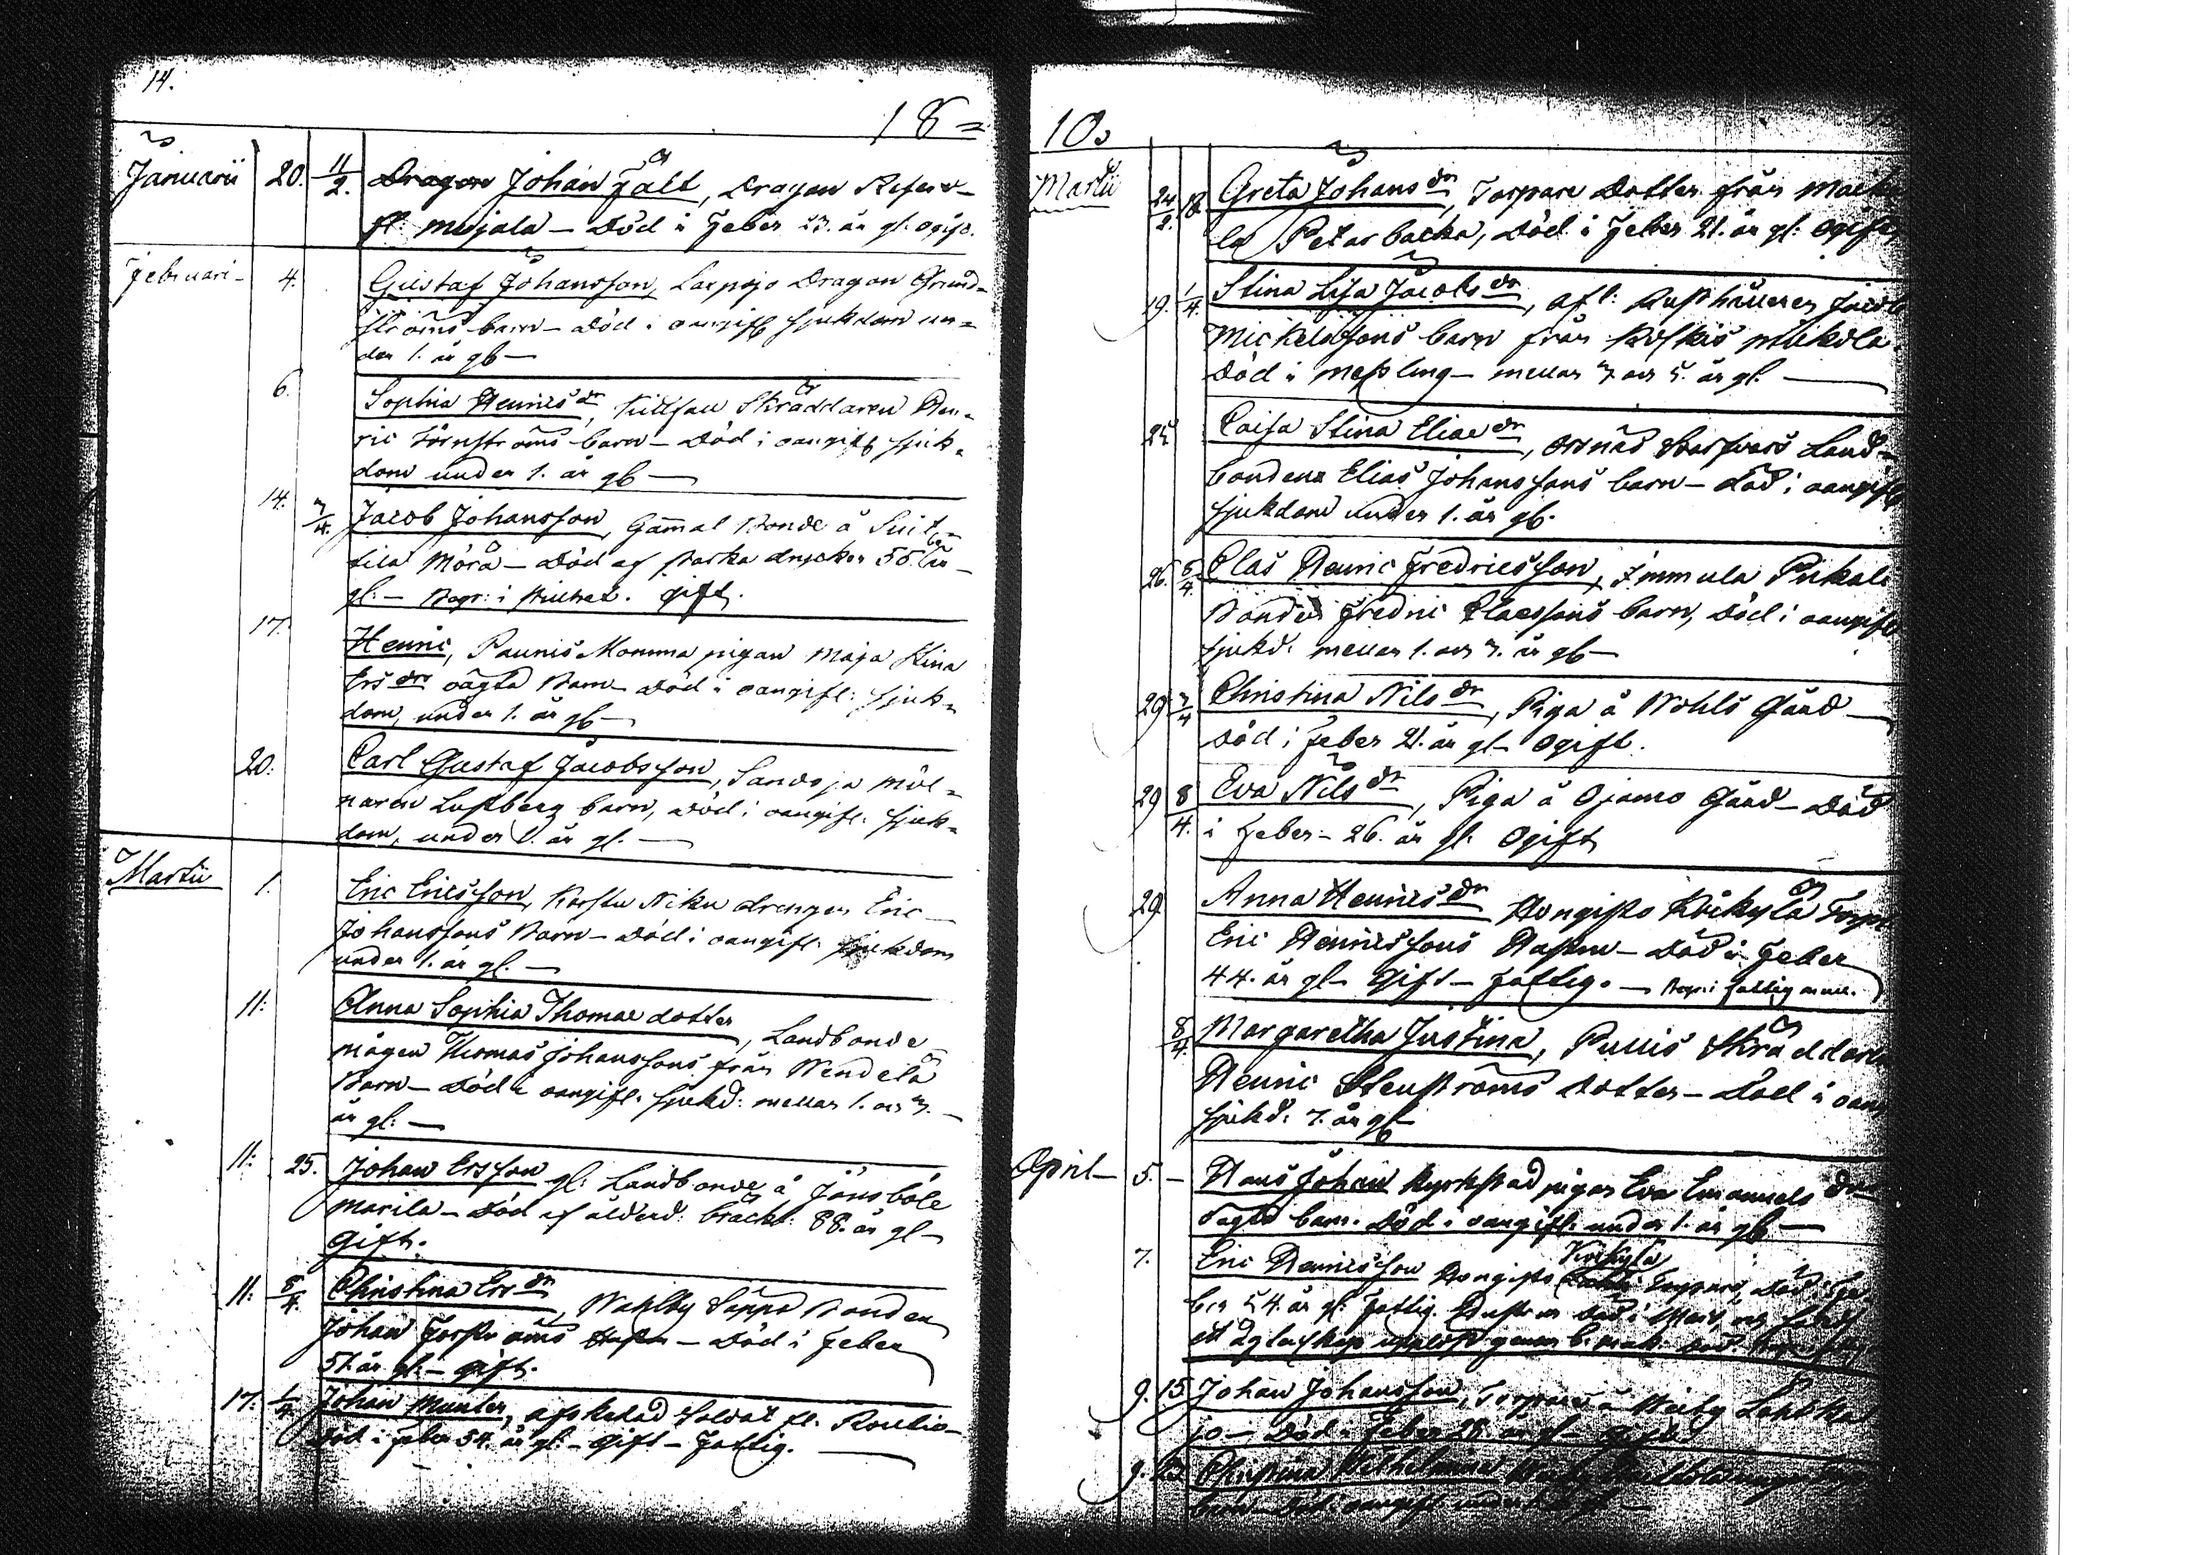 14.
18=
Januarii 20. 11/2. Dragon Johan Fält, Dragon Reserv-
fl: Maijala - Död i Feber 23. år gl. ogift.
Februari- 4. Gustaf Johansson, Laxpojo Dragon Grund-
ströms barn - Död i oangifl sjukdom un-
der 1. år gl -
6. Sophia Henricsdr, Skräddaren Hen-
ric Törnströms barn - Död i oangifl sjuk-
dom under 1. år gl -
14. 7/4. Jacob Johansson, Gammal Bonde å Suit-
tila Mörå - Död af starka drycker 55. år
gl. - Begr: i stillhet. gift.
17. Henric, Paunis Momma pigan Maja Stina
Ersdrs oägta Barn - Död i oangifl: sjuk-
dom, under 1. år gl -
20. Carl Gustaf Jacobsson, Sandsjo Möl-
naren Lustberg barn, Död i oangifl: sjuk-
dom, under 1. år gl. -
Martii 1. Eric Ericsson, Korsu Niku drengen Eric
Johanssons Barn - Död i oangifl: sjukdom
under 1. år gl. -
11. Anna Sophia Thomae dotter, Landbonde
mågen Thomas Johanssons från Wendelä
Barn - Död i oangifl. sjukd: mellan 1. och 3.
år gl. -
11. 25. Johan Ersson gl: Landbonde å Jönsböle
Marila - Död af ålderd: bräckl: 88. år gl -
Gift.
11. 5/4. Christina Ersdr, Wahlby Säppä Bonden
Johan Forströms Hustru - Död i Feber
51. år gl. - Gift.
17. 1/4. Johan Munter, afskedad Soldat fl.
Död i Feber 54. år gl - Gift - Fattig.
10.
15
Martii 24/2. 18 Greta Johansdr, Torpare Dotter från
la Petar backa, Död i Feber 21. år gl: Ogift
19. 1/4 Stina Lisa Jacobsdr, afl: Rusthållaren Jacob
Mickelssons barn från Koskis Mikola.
Död i Messling - mellan 3. och 5. år gl. -
25. Caisa Stina Eliaedr, Ornäs Land-
bondens Elias Johanssons barn - död i oangifl
sjukdom under 1. år gl.
26. 5/4 Clas Henric Fredricsson, Immula Pukala
Bonden Fredric Claessons barn, Död i oangifl
sjukd. mellan 1. och 3. år gl -
29. 7/4 Christina Nilsdr, Piga å Wohls Gård -
död i Feber 21. år gl - Ogift.
29 8/4. Eva Nilsdr, Piga å Ojamo Gård - Död
i Feber - 26. år gl: Ogift
29. Anna Henricsdr Hongisto Koikylä Torp
Eric Henricssons Hustru - Död i Feber
44. år gl - Gift - fattig. -
8/4 Margaretha Justina, Pullis Skräddare
Henric Stenströms dotter - Död i oang
sjukd. 7. år gl -
April - 5. - Hans Johan Kyrkstad pigan Eva Emanuelsdrs
oägta barn. Död i oangifl: under 1. år gl -
7. Eric Henricsson Hongisto Koikylä Torpare, Död i Fe-
ber 54. år gl: Fattig.
9. 15 Johan Johansson, Torpare å
jo - Död i Feber 28. år gl -
9. 23 Christina Wilhelmina
barn - Död i oangifl under